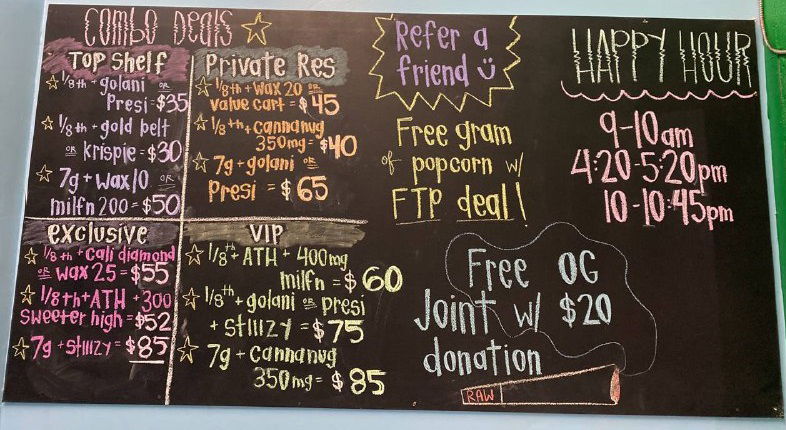 Combo Deals
Top Shelf
1/8th + golani OR
Presi = $35
1/8th + gold belt
OR krispie = $30
7g + wax10 OR
milfn 200 = $50
Private Res
1/8th + wax 20 OR
value cart = $45
1/8th + cannanug
350mg = $40
7g + golani OR
Presi = $65
exclusive
1/8th + cali diamond
OR wax 25 = $55
1/8th + ATH + 300
Sweeter high = $52
7g + stiiizy = $85
VIP
1/8th + ATH + 400mg
milfn = $60
1/8th + golani OR presi
+ stiiizy = $75
7g + cannanug
350mg = $85
Refer a
friend
Free gram
of popcorn w/
FTP deal!
Free OG
Joint w/ $20
donation
RAW
HAPPY HOUR
9-10am
4:20-5:20pm
10-10:45pm